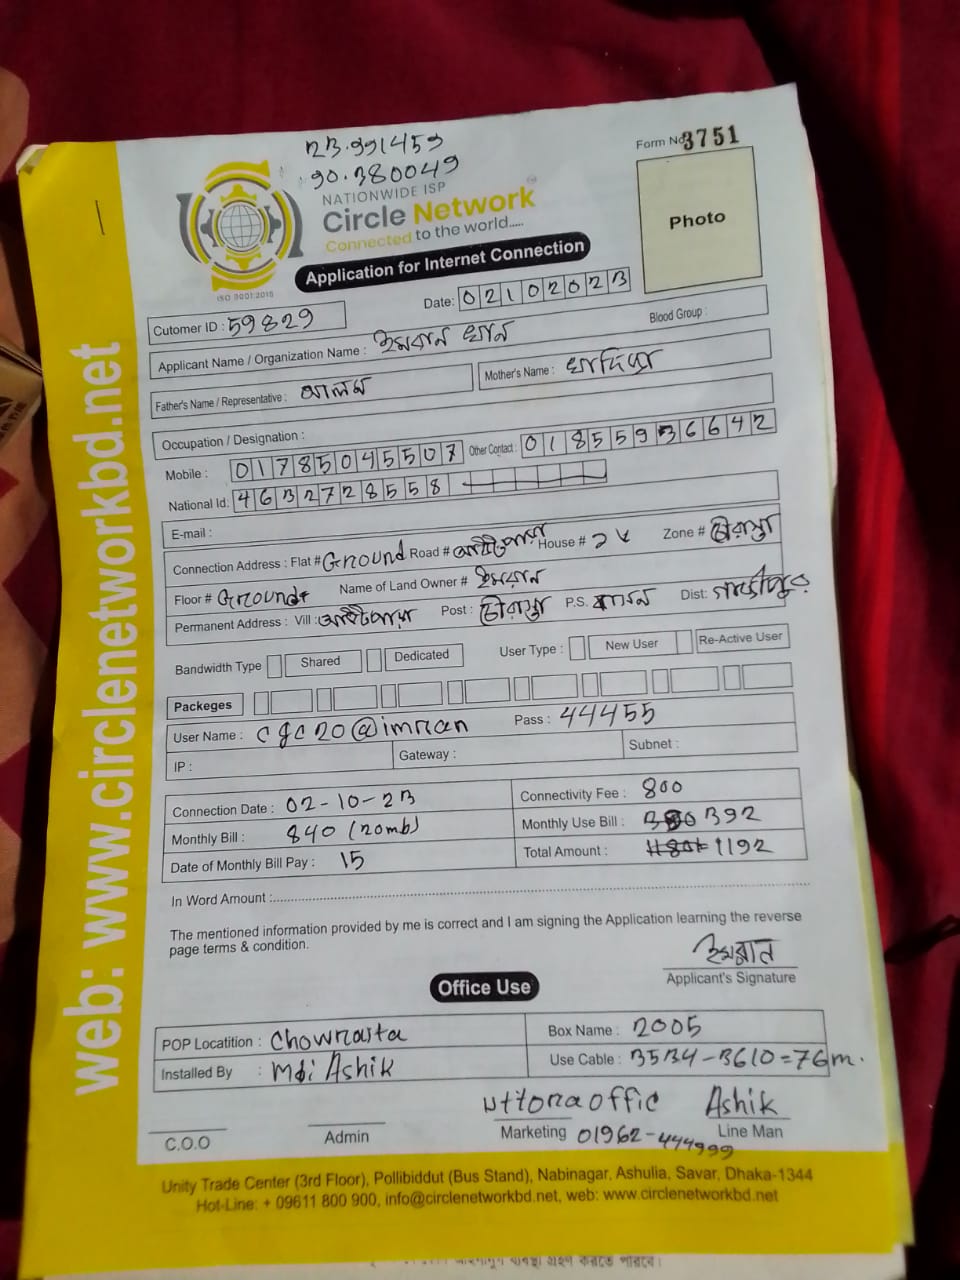 23.991459
90.380049
Form No 3751
NATIONWIDE ISP
Circle Network
Connected to the world.....
ISO 9001:2015
Photo
Application for Internet Connection
Date: 02102023
Cutomer ID : 59829
Blood Group :
Applicant Name / Organization Name : ইমরান খান
Father's Name / Representative : আলম
Mother's Name : খাদিজা
Occupation / Designation :
Mobile : 01785045507 Other Contact : 01855936642
National Id: 4632728558
E-mail :
Connection Address : Flat # Ground Road # House # Zone # চৌরাস্তা
Floor # Ground Name of Land Owner # ইমরান
Permanent Address : Vill : Post : চৌরাস্তা P.S. বাসন Dist: গাজীপুর
Bandwidth Type Shared Dedicated User Type : New User Re-Active User
Packeges
User Name : cgc20@imran Pass : 44455
IP : Gateway : Subnet :
Connection Date : 02-10-23 Connectivity Fee : 800
Monthly Bill : 840 (20mb) Monthly Use Bill : 392
Date of Monthly Bill Pay : 15 Total Amount : 1192
In Word Amount :
The mentioned information provided by me is correct and I am signing the Application learning the reverse
page terms & condition.
ইমরান
Applicant's Signature
Office Use
POP Locatition : Chowrasta Box Name : 2005
Installed By : Md: Ashik Use Cable : 3534-3610=76m.
uttora offic Ashik
C.O.O Admin Marketing 01962-444999 Line Man
Unity Trade Center (3rd Floor), Pollibiddut (Bus Stand), Nabinagar, Ashulia, Savar, Dhaka-1344
Hot-Line: + 09611 800 900, info@circlenetworkbd.net, web: www.circlenetworkbd.net
web: www.circlenetworkbd.net
ব্যবস্থা গ্রহণ করতে পারবে।